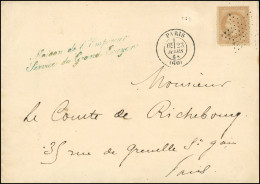 Maison de l'Empereur
Service du Grand Ecuyer
PARIS
(60)
Monsieur
Le Comte de Richebourg
35 rue de Grenelle St Gon
Paris